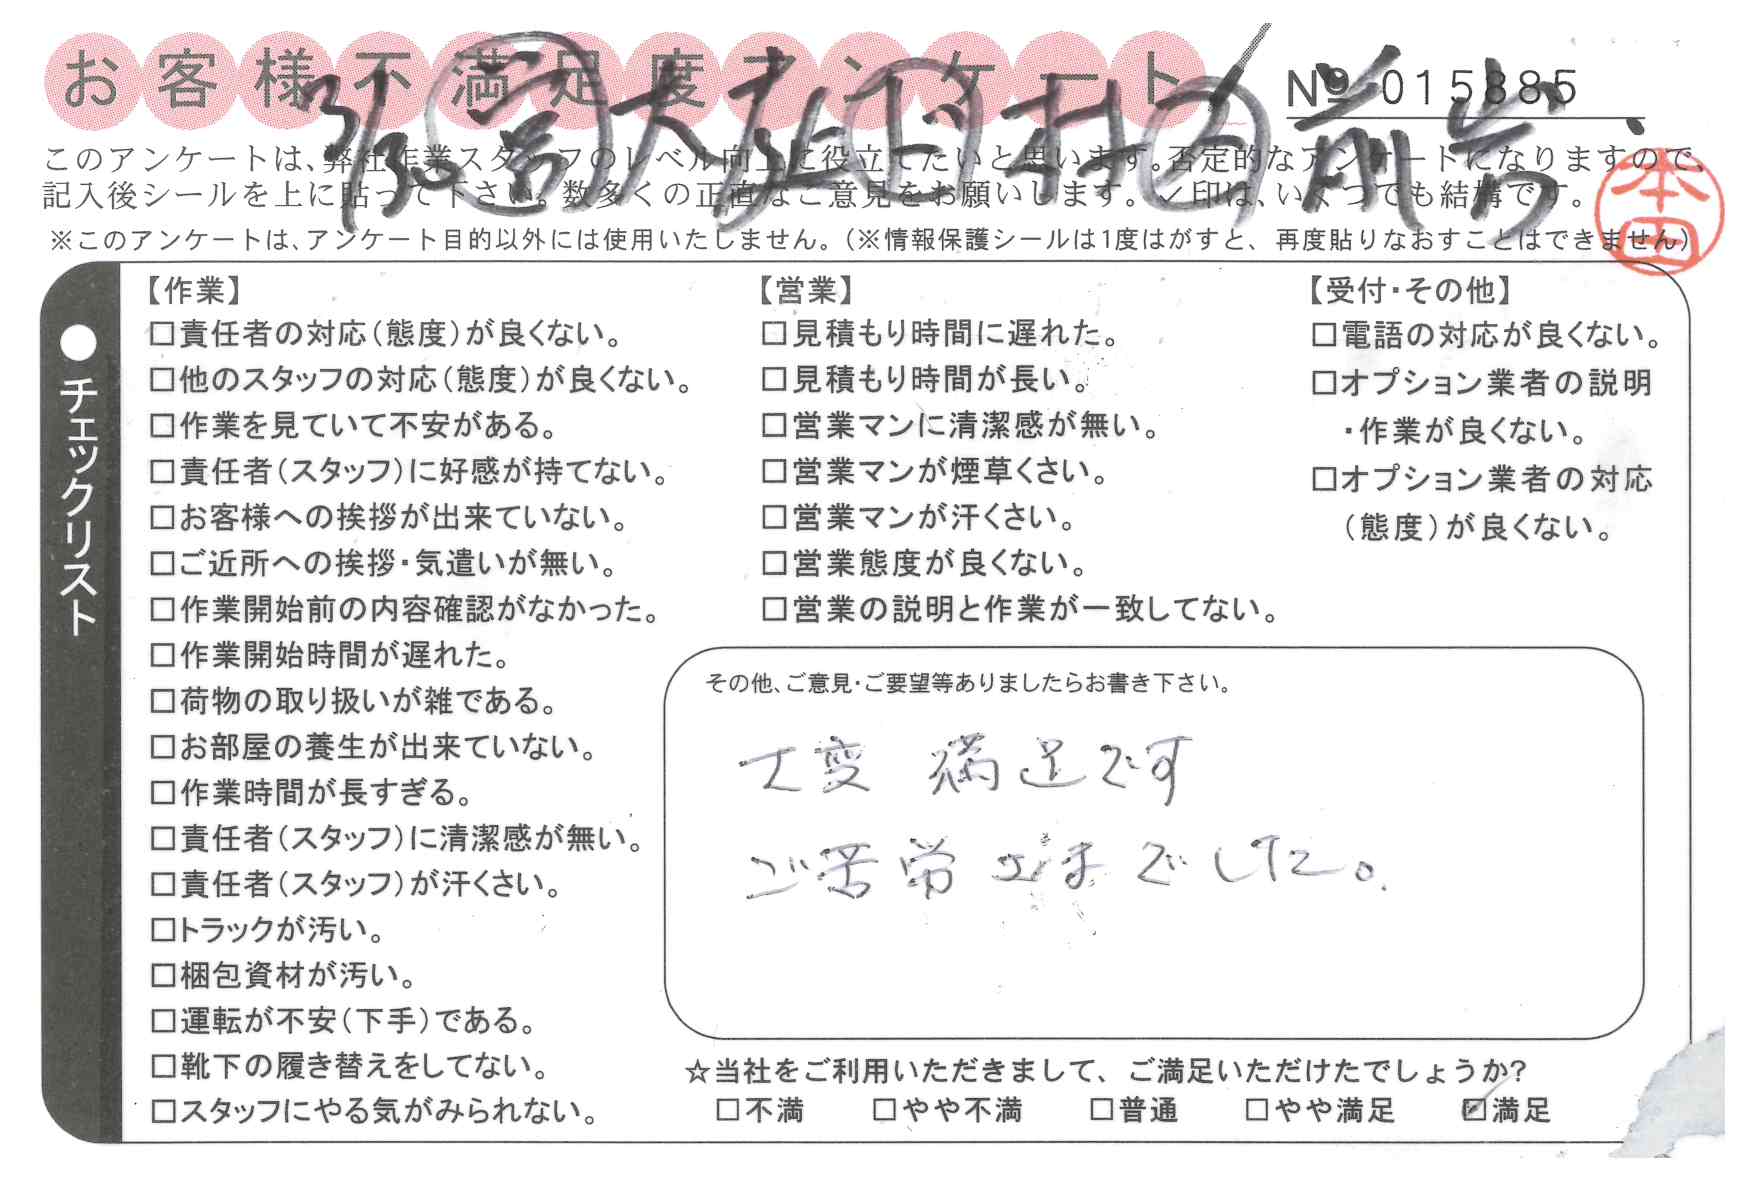 お客様不満足度アンケート
№ 015885
このアンケートは、弊社作業スタッフのレベル向上に役立てたいと思います。否定的なアンケートになりますので、
記入後シールを上に貼って下さい。数多くの正直なご意見をお願いします。✓印は、いくつでも結構です。
※このアンケートは、アンケート目的以外には使用いたしません。(※情報保護シールは1度はがすと、再度貼りなおすことはできません)
本田
●チェックリスト
【作業】
□責任者の対応(態度)が良くない。
□他のスタッフの対応(態度)が良くない。
□作業を見ていて不安がある。
□責任者(スタッフ)に好感が持てない。
□お客様への挨拶が出来ていない。
□ご近所への挨拶・気遣いが無い。
□作業開始前の内容確認がなかった。
□作業開始時間が遅れた。
□荷物の取り扱いが雑である。
□お部屋の養生が出来ていない。
□作業時間が長すぎる。
□責任者(スタッフ)に清潔感が無い。
□責任者(スタッフ)が汗くさい。
□トラックが汚い。
□梱包資材が汚い。
□運転が不安(下手)である。
□靴下の履き替えをしてない。
□スタッフにやる気がみられない。
【営業】
□見積もり時間に遅れた。
□見積もり時間が長い。
□営業マンに清潔感が無い。
□営業マンが煙草くさい。
□営業マンが汗くさい。
□営業態度が良くない。
□営業の説明と作業が一致してない。
【受付・その他】
□電語の対応が良くない。
□オプション業者の説明
・作業が良くない。
□オプション業者の対応
(態度)が良くない。
その他、ご意見・ご要望等ありましたらお書き下さい。
大変 満足です
ご苦労さまでした。
☆当社をご利用いただきまして、ご満足いただけたでしょうか?
□不満 □やや不満 □普通 □やや満足 ☑満足